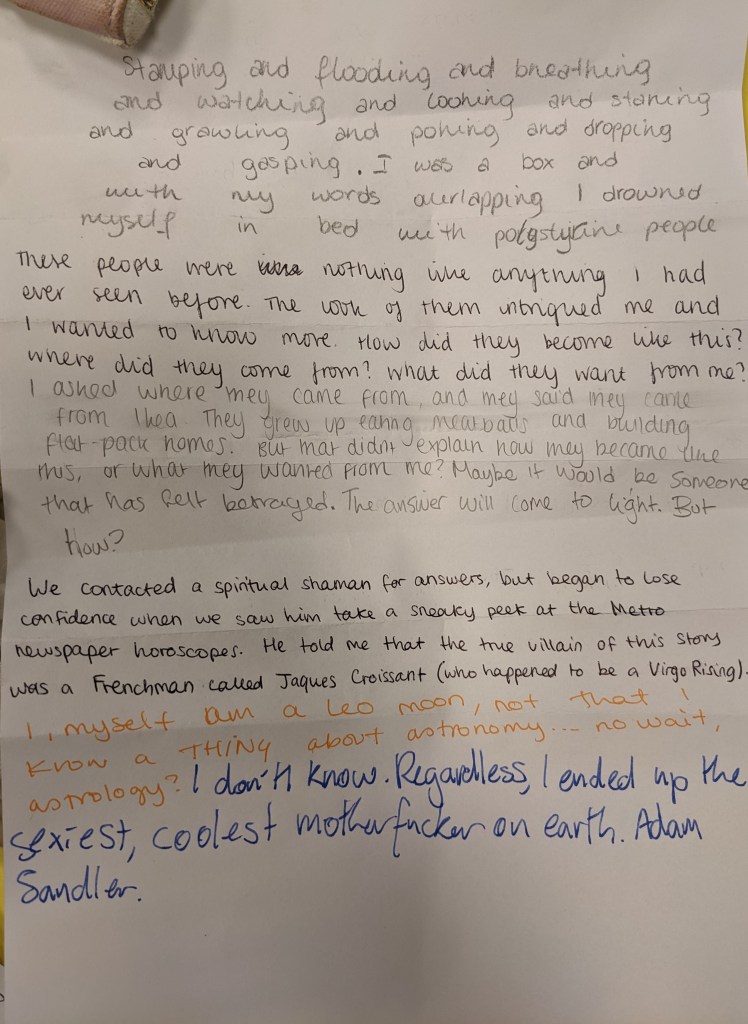 Stamping and flooding and breathing
and watching and looking and staring
and growling and poking and dropping
and gasping. I was a box and
with my words overlapping I drowned
myself in bed with polystyrine people
These people were nothing like anything I had
ever seen before. The look of them intrigued me and
I wanted to know more. How did they become like this?
where did they come from? what did they want from me?
I asked where they came from, and they said they came
from Ikea. They grew up eating meatballs and building
flat-pack homes. But that didnt explain how they became like
this, or what they wanted from me? Maybe it would be someone
that has felt betrayed. The answer will come to light. But
How?
We contacted a spiritual shaman for answers, but began to lose
confidence when we saw him take a sneaky peek at the Metro
newspaper horoscopes. He told me that the true villain of this story
was a Frenchman called Jaques Croissant (who happened to be a Virgo Rising).
I, myself am a Leo moon, not that I
know a THING about astronomy... no wait,
astrology? I don't know. Regardless, I ended up the
sexiest, coolest motherfucker on earth. Adam
Sandler.